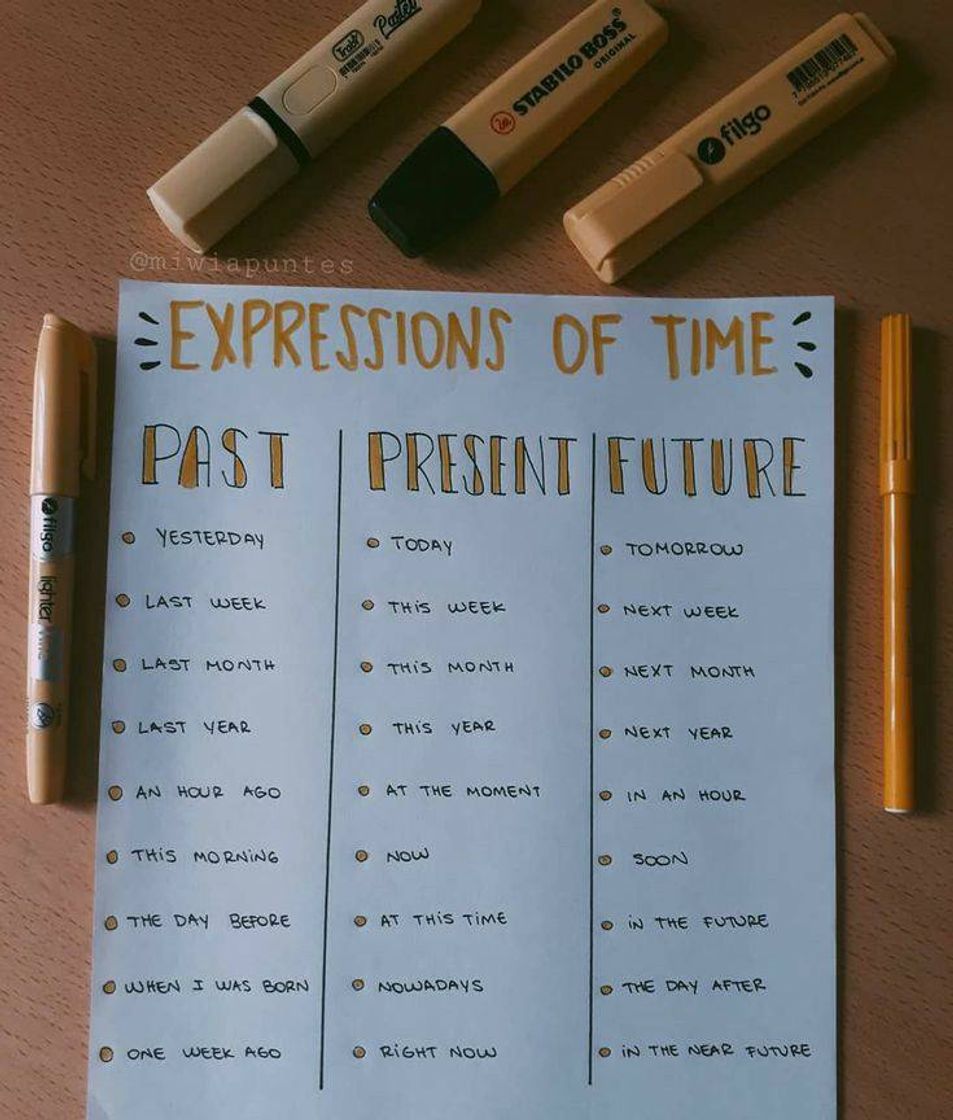 Trabi
Pastel
STABILO BOSS
ORIGINAL
filgo
@miwiapuntes
EXPRESSIONS OF TIME
PAST PRESENT FUTURE
YESTERDAY TODAY TOMORROW
LAST WEEK THIS WEEK NEXT WEEK
LAST MONTH THIS MONTH NEXT MONTH
LAST YEAR THIS YEAR NEXT YEAR
AN HOUR AGO AT THE MOMENT IN AN HOUR
THIS MORNING NOW SOON
THE DAY BEFORE AT THIS TIME IN THE FUTURE
WHEN I WAS BORN NOWADAYS THE DAY AFTER
ONE WEEK AGO RIGHT NOW IN THE NEAR FUTURE
filgo lighter fine